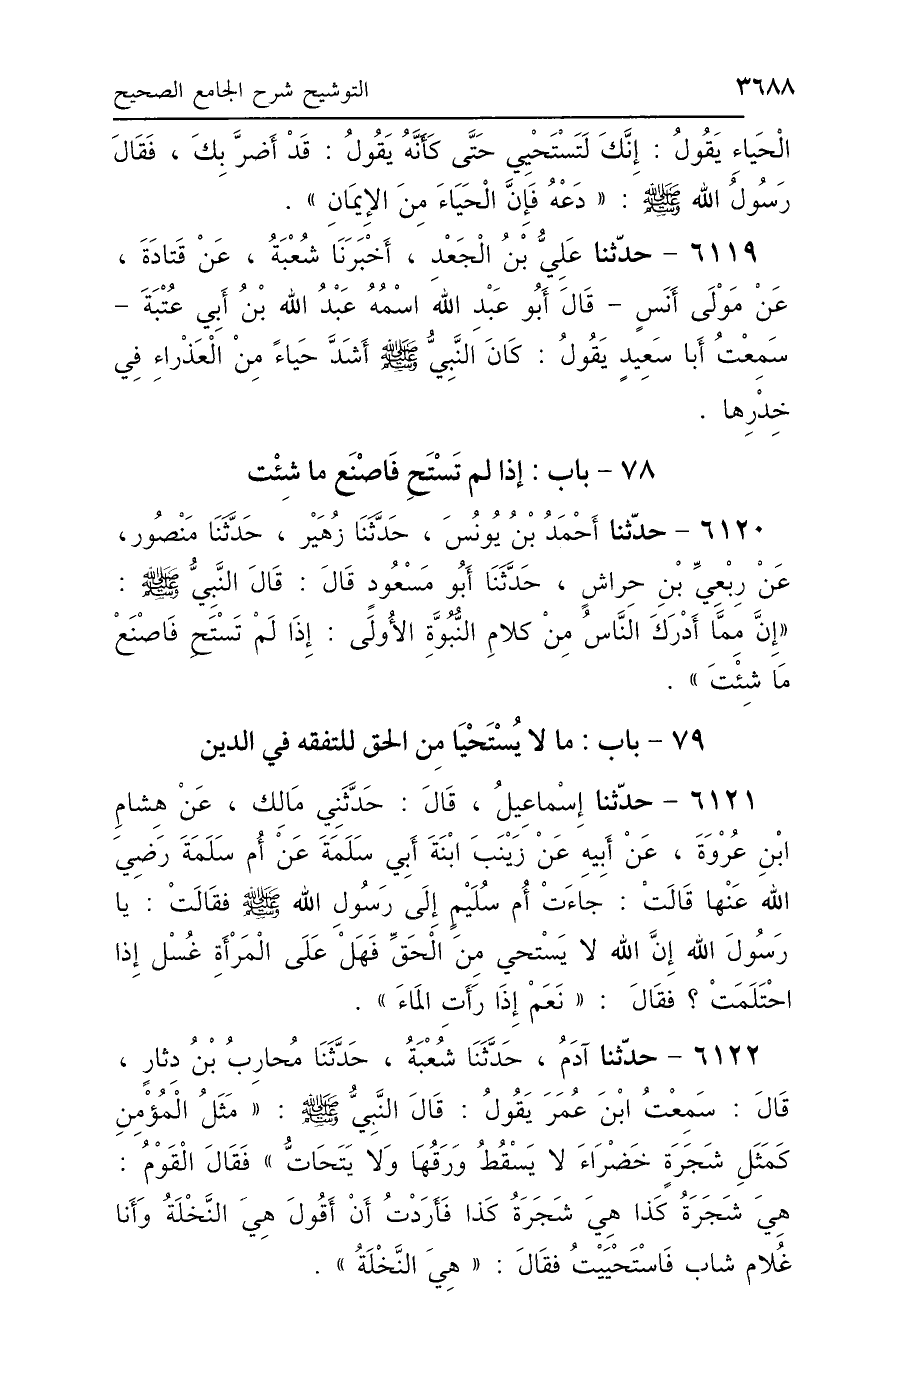 ٣٦٨٨ التوشيح شرح الجامع الصحيح
الْحَيَاءِ يَقُولُ : إِنَّكَ لَتَسْتَحْيِي حَتَّى كَأَنَّهُ يَقُولُ : قَدْ أَضرَّ بِكَ ، فَقَالَ
رَسُولُ الله ﷺ : « دَعْهُ فَإِنَّ الْحَيَاءَ مِنَ الإِيمَانِ » .
٦١١٩ - حدّثنا عَلِيُّ بْنُ الْجَعْدِ ، أَخْبَرَنَا شُعْبَةُ ، عَنْ قَتادَةَ ،
عَنْ مَوْلَى أَنَسٍ - قَالَ أَبُو عَبْدِ الله اسْمُهُ عَبْدُ الله بْنُ أَبِي عُتْبَةَ -
سَمِعْتُ أَبا سَعِيدٍ يَقُولُ : كَانَ النَّبِيُّ ﷺ أَشَدَّ حَياءً مِنْ الْعَذْراءِ فِي
خِدْرِها .
٧٨ - باب : إذا لم تَسْتَحِ فَاصْنَع ما شئِْت
٦١٢٠ - حدّثنا أَحْمَدُ بْنُ يُونُسَ ، حَدَّثَنَا زُهَيْر ، حَدَّثَنَا مَنْصُور،
عَنْ رِبْعِيِّ بْنِ حِراشٍ ، حَدَّثَنَا أَبُو مَسْعُودٍ قَالَ : قَالَ النَّبِيُّ ﷺ :
«إِنَّ مِمَّا أَدْرَكَ النَّاسُ مِنْ كلامِ النُّبُوَّةِ الأُولَى : إِذَا لَمْ تَسْتَحِ فَاصْنَعْ
مَا شِئْتَ » .
٧٩ - باب : ما لا يُسْتَحْيَا مِن الحق للتفقه في الدين
٦١٢١ - حدّثنا إِسْماعِيلُ ، قَالَ : حَدَّثَنِي مَالِك ، عَنْ هِشامِ
ابْنِ عُرْوَةَ ، عَنْ أَبِيهِ عَنْ زَيْنَبَ ابْنَةَ أَبِي سَلَمَةَ عَنْ أُم سَلَمَةَ رَضِيَ
الله عَنْها قَالَتْ : جاءَتْ أُم سُلَيْمٍ إِلَى رَسُولِ الله ﷺ فقَالَتْ : يا
رَسُولَ الله إِنَّ الله لا يَسْتحي مِنَ الْحَقِّ فَهَلْ عَلَى الْمَرْأَةِ غُسْل إِذا
احْتَلَمَتْ ؟ فقَالَ : « نَعَمْ إِذَا رَأَت الْمَاءَ » .
٦١٢٢ - حدّثنا آدَمُ ، حَدَّثَنَا شُعْبَةُ ، حَدَّثَنَا مُحارِبُ بْنُ دثارٍ ،
قَالَ : سَمِعْتُ ابْنَ عُمَرَ يَقُولُ : قَالَ النَّبِيُّ ﷺ : « مَثَلُ الْمُؤْمِنِ
كَمَثَلِ شَجَرَةٍ خَضْرَاءَ لا يَسْقُطُ وَرَقُهَا وَلا يَتَحَاتُّ » فَقَالَ الْقَوْمُ :
هِيَ شَجَرَةُ كَذا هِيَ شَجَرَةُ كَذا فَأَرَدْتُ أَنْ أَقُولَ هِيَ النَّخْلَةُ وَأَنا
غُلام شاب فَاسْتَحْيَيْتُ فقَالَ : « هِيَ النَّخْلَةُ » .